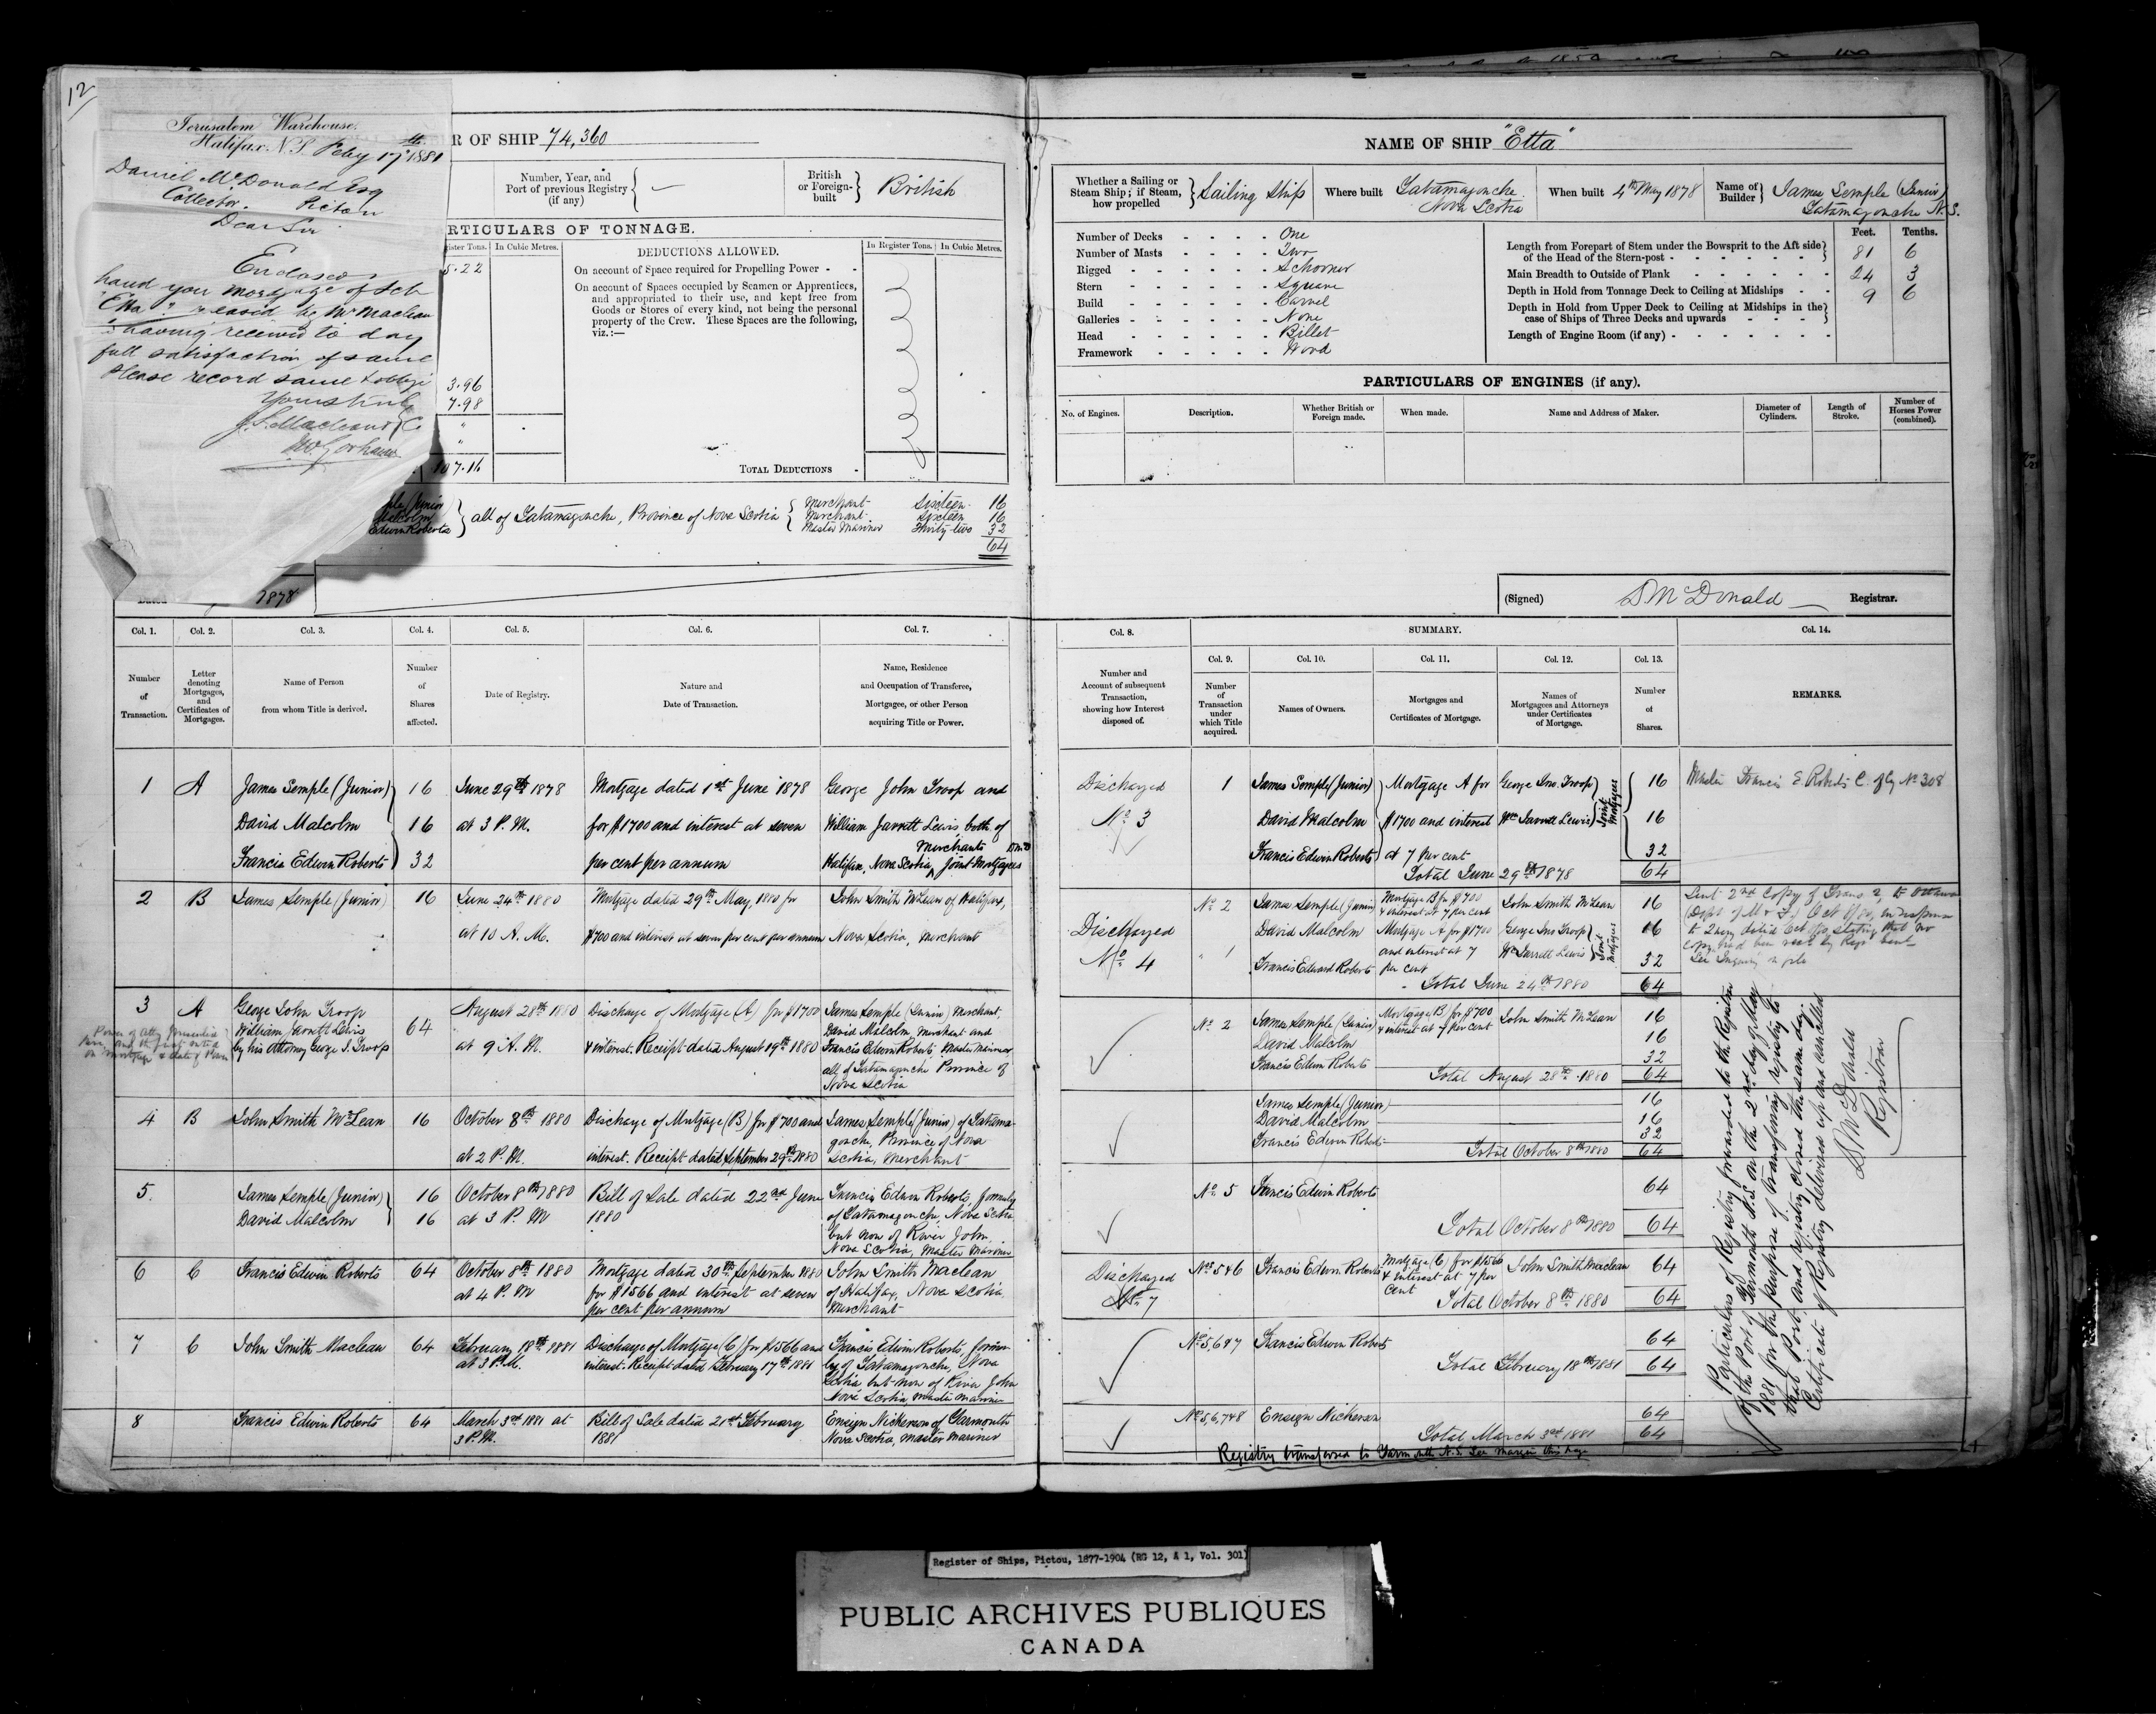 12
Jerusalem Warehouse.
Halifax. N.S. Feby 17th 1881
Daniel McDonald Esq
Collector. Pictou
Dear Sir
Enclosed
hand you mortgage of Sch
"Etta" released by Mr Maclean
having received to day
full satisfaction of same
Please record same & oblige
Yours truly
J.S. Maclean & Co
R OF SHIP 74,360
Number, Year, and
Port of previous Registry
(if any)
British
or Foreign-
built
British
RTICULARS OF TONNAGE.
ister Tons. In Cubic Metres.
DEDUCTIONS ALLOWED.
In Register Tons. In Cubic Metres.
5.22
On account of Space required for Propelling Power - -
On account of Spaces occupied by Seamen or Apprentices,
and appropriated to their use, and kept free from
Goods or Stores of every kind, not being the personal
property of the Crew. These Spaces are the following,
viz.:—
3.96
7.98
"
"
107.16
TOTAL DEDUCTIONS -
ple (Junior
Malcolm
Edwin Roberts
all of Tatamagouche, Province of Nova Scotia
Merchant Sixteen 16
Merchant Sixteen 16
Master Mariner Thirty-two 32
64
1878
Col. 1. Col. 2. Col. 3. Col. 4. Col. 5. Col. 6. Col. 7.
Number
of
Transaction.
Letter
denoting
Mortgages,
and
Certificates of
Mortgages.
Name of Person
from whom Title is derived.
Number
of
Shares
affected.
Date of Registry.
Nature and
Date of Transaction.
Name, Residence
and Occupation of Transferee,
Mortgagee, or other Person
acquiring Title or Power.
1 A James Semple (Junior) 16 June 29th 1878 Mortgage dated 1st June 1878 George John Troop and
David Malcolm 16 at 3 P.M. for $1700 and interest at seven William Jarrett Lewis, both of
Merchants
Francis Edwin Roberts 32 per cent per annum Halifax, Nova Scotia, Joint Mortgagees
2 B James Semple (Junior) 16 June 24th 1880 Mortgage dated 29th May, 1880 for John Smith McLean of Halifax,
at 10 A.M. $700 and interest at seven per cent per annum Nova Scotia, Merchant
3 A George John Troop
William Jarrett Lewis
by his Attorney George J. Troop
64
August 28th 1880
at 9 A.M.
Discharge of Mortgage (A) for $1700
& interest. Receipt dated August 19th 1880
James Semple (Junior) Merchant,
David Malcolm, Merchant and
Francis Edwin Roberts, Master Mariner
all of Tatamagouche Province of
Nova Scotia
4 B John Smith McLean 16 October 8th 1880
at 2 P.M.
Discharge of Mortgage (B) for $700 and
interest. Receipt dated September 29th 1880
James Semple (Junior) of Tatama-
gouche, Province of Nova
Scotia, Merchant
5. James Semple (Junior) 16
David Malcolm 16
October 8th 1880
at 3 P.M
Bill of Sale dated 22nd June
1880
Francis Edwin Roberts, formerly
of Tatamagouche, Nova Scotia
but now of River John,
Nova Scotia, Master Mariner
6 C Francis Edwin Roberts 64 October 8th 1880
at 4 P.M
Mortgage dated 30th September 1880
for $1566 and interest at seven
per cent per annum
John Smith Maclean
of Halifax, Nova Scotia,
Merchant
7 C John Smith Maclean 64 February 18th 1881
at 3 P.M.
Discharge of Mortgage (C) for $1566 and
interest. Receipt dated February 17th 1881
Francis Edwin Roberts, former-
ly of Tatamagouche, Nova
Scotia but now of River John
Nova Scotia, Master Mariner
8 Francis Edwin Roberts 64 March 3rd 1881 at
3 P.M.
Bill of Sale dated 21st February
1881
Ensign Nickerson of Yarmouth
Nova Scotia, Master Mariner
NAME OF SHIP "Etta"
Whether a Sailing or
Steam Ship; if Steam,
how propelled
Sailing Ship
Where built
Tatamagouche
Nova Scotia
When built 4th May 1878
Name of
Builder
James Semple (Junior)
Tatamagouche N.S.
Number of Decks - - - - One
Number of Masts - - - - Two
Rigged - - - - - Schooner
Stern - - - - - Square
Build - - - - - Carvel
Galleries - - - - - None
Head - - - - - Billet
Framework - - - - - Wood
Feet. Tenths.
Length from Forepart of Stem under the Bowsprit to the Aft side
of the Head of the Stern-post - - - - - - 81 6
Main Breadth to Outside of Plank - - - - - - 24 3
Depth in Hold from Tonnage Deck to Ceiling at Midships - - 9 6
Depth in Hold from Upper Deck to Ceiling at Midships in the
case of Ships of Three Decks and upwards - - - -
Length of Engine Room (if any) - - - - - - -
PARTICULARS OF ENGINES (if any).
No. of Engines. Description. Whether British or
Foreign made. When made. Name and Address of Maker. Diameter of
Cylinders. Length of
Stroke. Number of
Horses Power
(combined).
(Signed) D McDonald Registrar.
Col. 8. SUMMARY. Col. 14.
Col. 9. Col. 10. Col. 11. Col. 12. Col. 13.
Number and
Account of subsequent
Transaction,
showing how Interest
disposed of.
Number
of
Transaction
under
which Title
acquired.
Names of Owners.
Mortgages and
Certificates of Mortgage.
Names of
Mortgagees and Attorneys
under Certificates
of Mortgage.
Number
of
Shares.
REMARKS.
Discharged
No 3
1 James Semple (Junior) Mortgage A for George Jno. Troop 16
David Malcolm $1700 and interest Wm Jarrett Lewis 16
Joint Mortgagees
Francis Edwin Roberts at 7 per cent 32
Total June 29th 1878 64
Discharged
No 4
No 2 James Semple (Junior) Mortgage B for $700
& interest at 7 per cent John Smith McLean 16
David Malcolm Mortgage A for $1700 George Jno Troop 16
" 1 and interest at 7 Wm Jarrett Lewis
Joint Mortgagees
Francis Edward Roberts per cent 32
Total June 24th 1880 64
No 2 James Semple (Junior) Mortgage B for $700
& interest at 7 per cent John Smith McLean 16
David Malcolm 16
Francis Edwin Roberts 32
Total August 28th 1880 64
James Semple (Junior) 16
David Malcolm 16
Francis Edwin Roberts 32
Total October 8th 1880 64
No 5 Francis Edwin Roberts 64
Total October 8th 1880 64
Discharged
No 7
No 5&6 Francis Edwin Roberts Mortgage (C) for $1566
& interest at 7 per
cent John Smith Maclean 64
Total October 8th 1880 64
No 5,6&7 Francis Edwin Roberts 64
Total February 18th 1881 64
No 5,6,7&8 Ensign Nickerson 64
Total March 3rd 1881 64
Registry transferred to Yarmouth N.S. See margin this page
Master Francis E Roberts C. of Cy No 308
Sent 2nd copy of Trans 2, to Ottawa
Particulars of Registry forwarded to the Registrar
of the Port of Yarmouth N.S. on the 2nd day of May
1881 for the purpose of transferring registry to
that Port and registry closed the same day.
Certificate of Registry delivered up and cancelled
D McDonald
Registrar
Register of Ships, Pictou, 1877-1904 (RG 12, A 1, Vol. 301)
PUBLIC ARCHIVES PUBLIQUES
CANADA